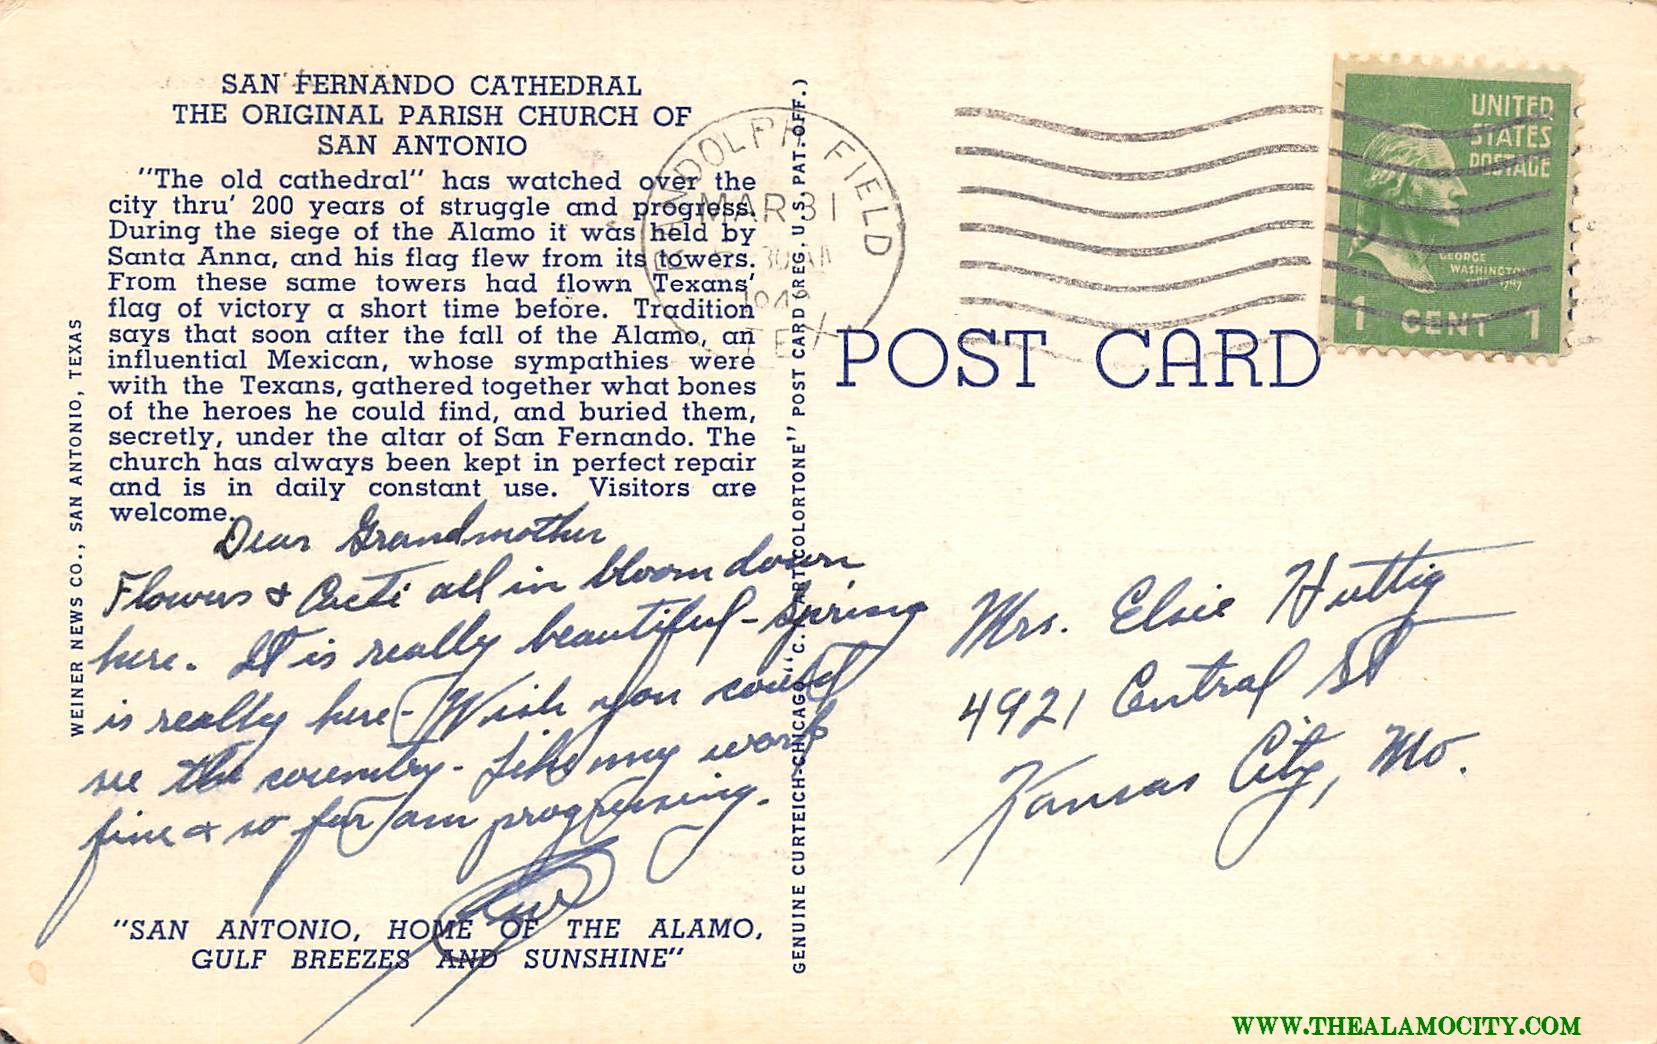 SAN FERNANDO CATHEDRAL
THE ORIGINAL PARISH CHURCH OF
SAN ANTONIO
"The old cathedral" has watched over the
city thru' 200 years of struggle and progress.
During the siege of the Alamo it was held by
Santa Anna, and his flag flew from its towers.
From these same towers had flown Texans'
flag of victory a short time before. Tradition
says that soon after the fall of the Alamo, an
influential Mexican, whose sympathies were
with the Texans, gathered together what bones
of the heroes he could find, and buried them,
secretly, under the altar of San Fernando. The
church has always been kept in perfect repair
and is in daily constant use. Visitors are
welcome.
Dear Grandmother
Flowers & Cacti all in bloom down
here. It is really beautiful - Spring
is really here - Wish you could
see the country - Like my work
fine & so far am progressing.
"SAN ANTONIO, HOME OF THE ALAMO,
GULF BREEZES AND SUNSHINE"
WEINER NEWS CO., SAN ANTONIO, TEXAS
GENUINE CURTEICH-CHICAGO "C.T. ART-COLORTONE" POST CARD (REG. U.S. PAT. OFF.)
RANDOLPH FIELD
MAR 31
30 AM
TEX
POST CARD
UNITED
STATES
POSTAGE
GEORGE
WASHINGTON
1 CENT 1
Mrs. Elsie Huttig
4921 Central St
Kansas City, Mo.
WWW.THEALAMOCITY.COM